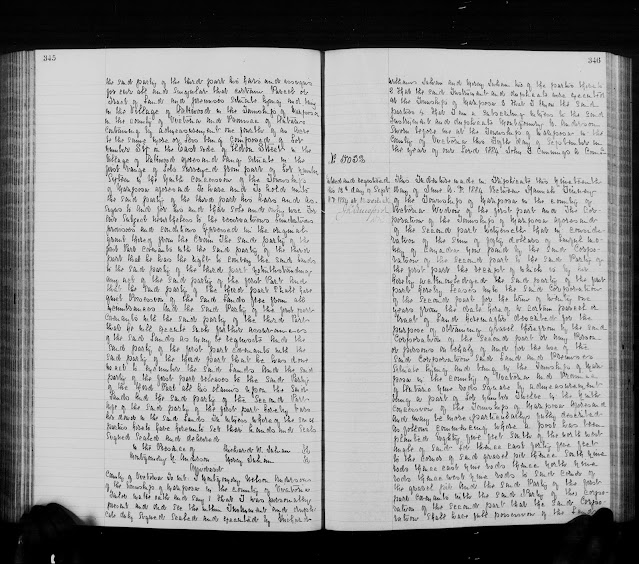 345
the said party of the third part his heirs and assigns
for ever all and singular that certain Parcel or
Tract of Land and premises situate lying and being
in the Village of in the Township of Mariposa
in the County of Victoria and Province of Ontario
Containing by admeasurement one fourth of an Acre
be the same more or less being Composed of Lot
Number on the East side of Street in the
Village of aforesaid being situate in the
first range of Lots surveyed from part of Lot Number
in the Ninth Concession of the Township
of Mariposa aforesaid To have and to hold unto
the said party of the third part his heirs and as-
signs to and for his and their sole and only use For
ever Subject Nevertheless to the reservations limitations
provisoes and conditions expressed in the original
Grant thereof from the Crown The said party of the
first part Covenants with the said party of the third
part that he has the right to convey the said lands
to the said party of the third part notwithstanding
any act of the said party of the first part And
that the said party of the third part shall have
quiet Possession of the said Lands free from all
incumbrances And the said Party of the first part
Covenants with the said party of the third Part
that he will execute such further assurances
of the said Lands as may be requisite And the
said party of the first part Covenants with the
said party of the third part that he has done
no act to encumber the said Lands And the said
party of the first part releases to the said Party
of the third Part all his claims upon the said
Lands And the said party of the Second Part
wife of the said party of the first part hereby bars
her dower in the said Lands In witness whereof the said
parties hereto have hereunto set their hands and seals
Signed Sealed and delivered
in the Presence of Richard W.
Montgomery N. Anderson
Affidavit
County of Victoria To wit I Montgomery Nelson Anderson
of the Township of Mariposa in the County of Victoria
make oath and say 1 that I was personally
present and did see the within Instrument and dupli-
cate duly Signed Sealed and executed by
346
William and two of the parties thereto
2 that the said Instrument and duplicate were executed
at the Township of Mariposa 3 that I know the said
parties 4 that I am a subscribing witness to the said
Instrument and duplicate Montgomery N. Anderson
Sworn before me at the Township of Mariposa in the
County of Victoria this day of September in
the year of our Lord 1884 John
No
and registered
this 18th day of Sept
AD 1884 at
This Indenture made in Duplicate this Nineteenth
day of June A.D. 1884 Between Hannah
of the Township of Mariposa in the County of
Victoria Widow of the first part and the Cor-
poration of the Township of Mariposa aforesaid
of the second part Witnesseth that in conside-
ration of the sum of forty dollars of lawful mo-
ney of Canada now paid by the said Corpo-
ration of the second part to the said Party of
the first part the receipt of which is by her
hereby acknowledged the said party of the first
part hereby leases unto the said Corporation
of the second part for the term of twenty one
years from the date hereof a certain parcel or
Tract of Land hereinafter described for the
purpose of obtaining gravel therefrom by the said
Corporation of the second part or any Person
or persons on behalf of and for the use of the
said Corporation said Lands and Premises
situate lying and being in the Township of Mari-
posa in the County of Victoria and Province
of Ontario Rods Square by admeasurement
being a part of Lot Number Twelve in the Ninth
Concession of the Township of Mariposa aforesaid
and may be more particularly described
as follows commencing where a post has been
planted eighty five feet South of the north west
angle of said Lot thence East forty five feet
to the Corner of said gravel pit thence South nine
rods thence East nine rods thence North nine
rods thence West nine rods to said Corner of
the gravel pit And the said Party of the first
part Covenants with the said Party of the Corpo-
ration of the second part that the said Corpo-
ration shall have full possession of the Land